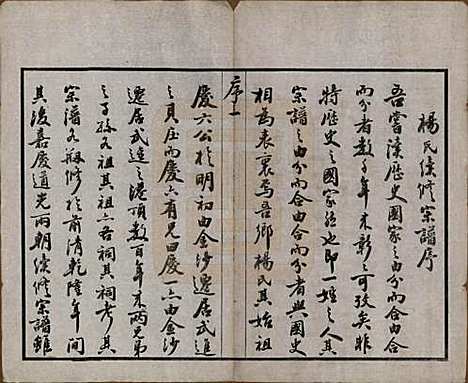 楊氏續修宗譜序
吾嘗讀歷史國家之由分而合由合
而分者數千年来彰彰可攷矣非
特歷史之國家然也即一姓之人其
宗譜之由分而合由合而分者與國史
相為表裏焉吾鄉楊氏其始祖
序一
慶六公於明初由金沙遷居武進
之貝庄而慶六有兄曰慶一亦由金沙
遷居武進之港頂數百年来兩兄弟
之子孫各祖其祖亦各祠其祠考其
宗譜各初修於前清乾隆年間
其後嘉慶道光兩朝續修宗譜雖